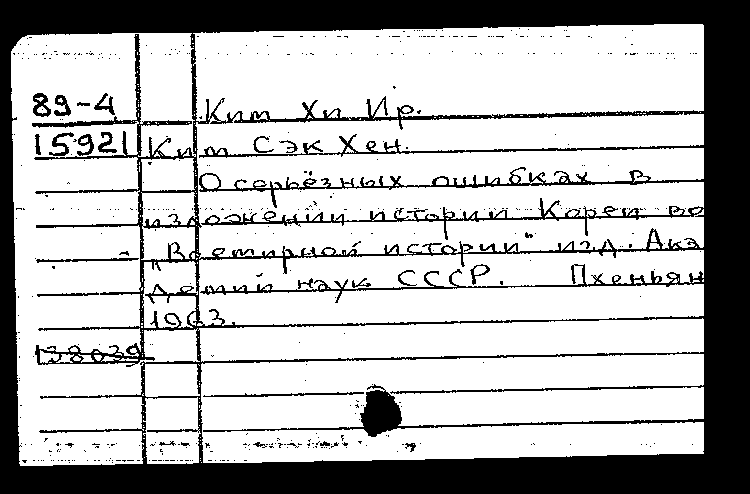 89-4 Ким Хи Ир.
15921 Ким Сэк Хен.
О серьёзных ошибках в
изложении истории Кореи во
„Всемирной истории" изд. Ака
демии наук СССР. Пхеньян
1963.
138039